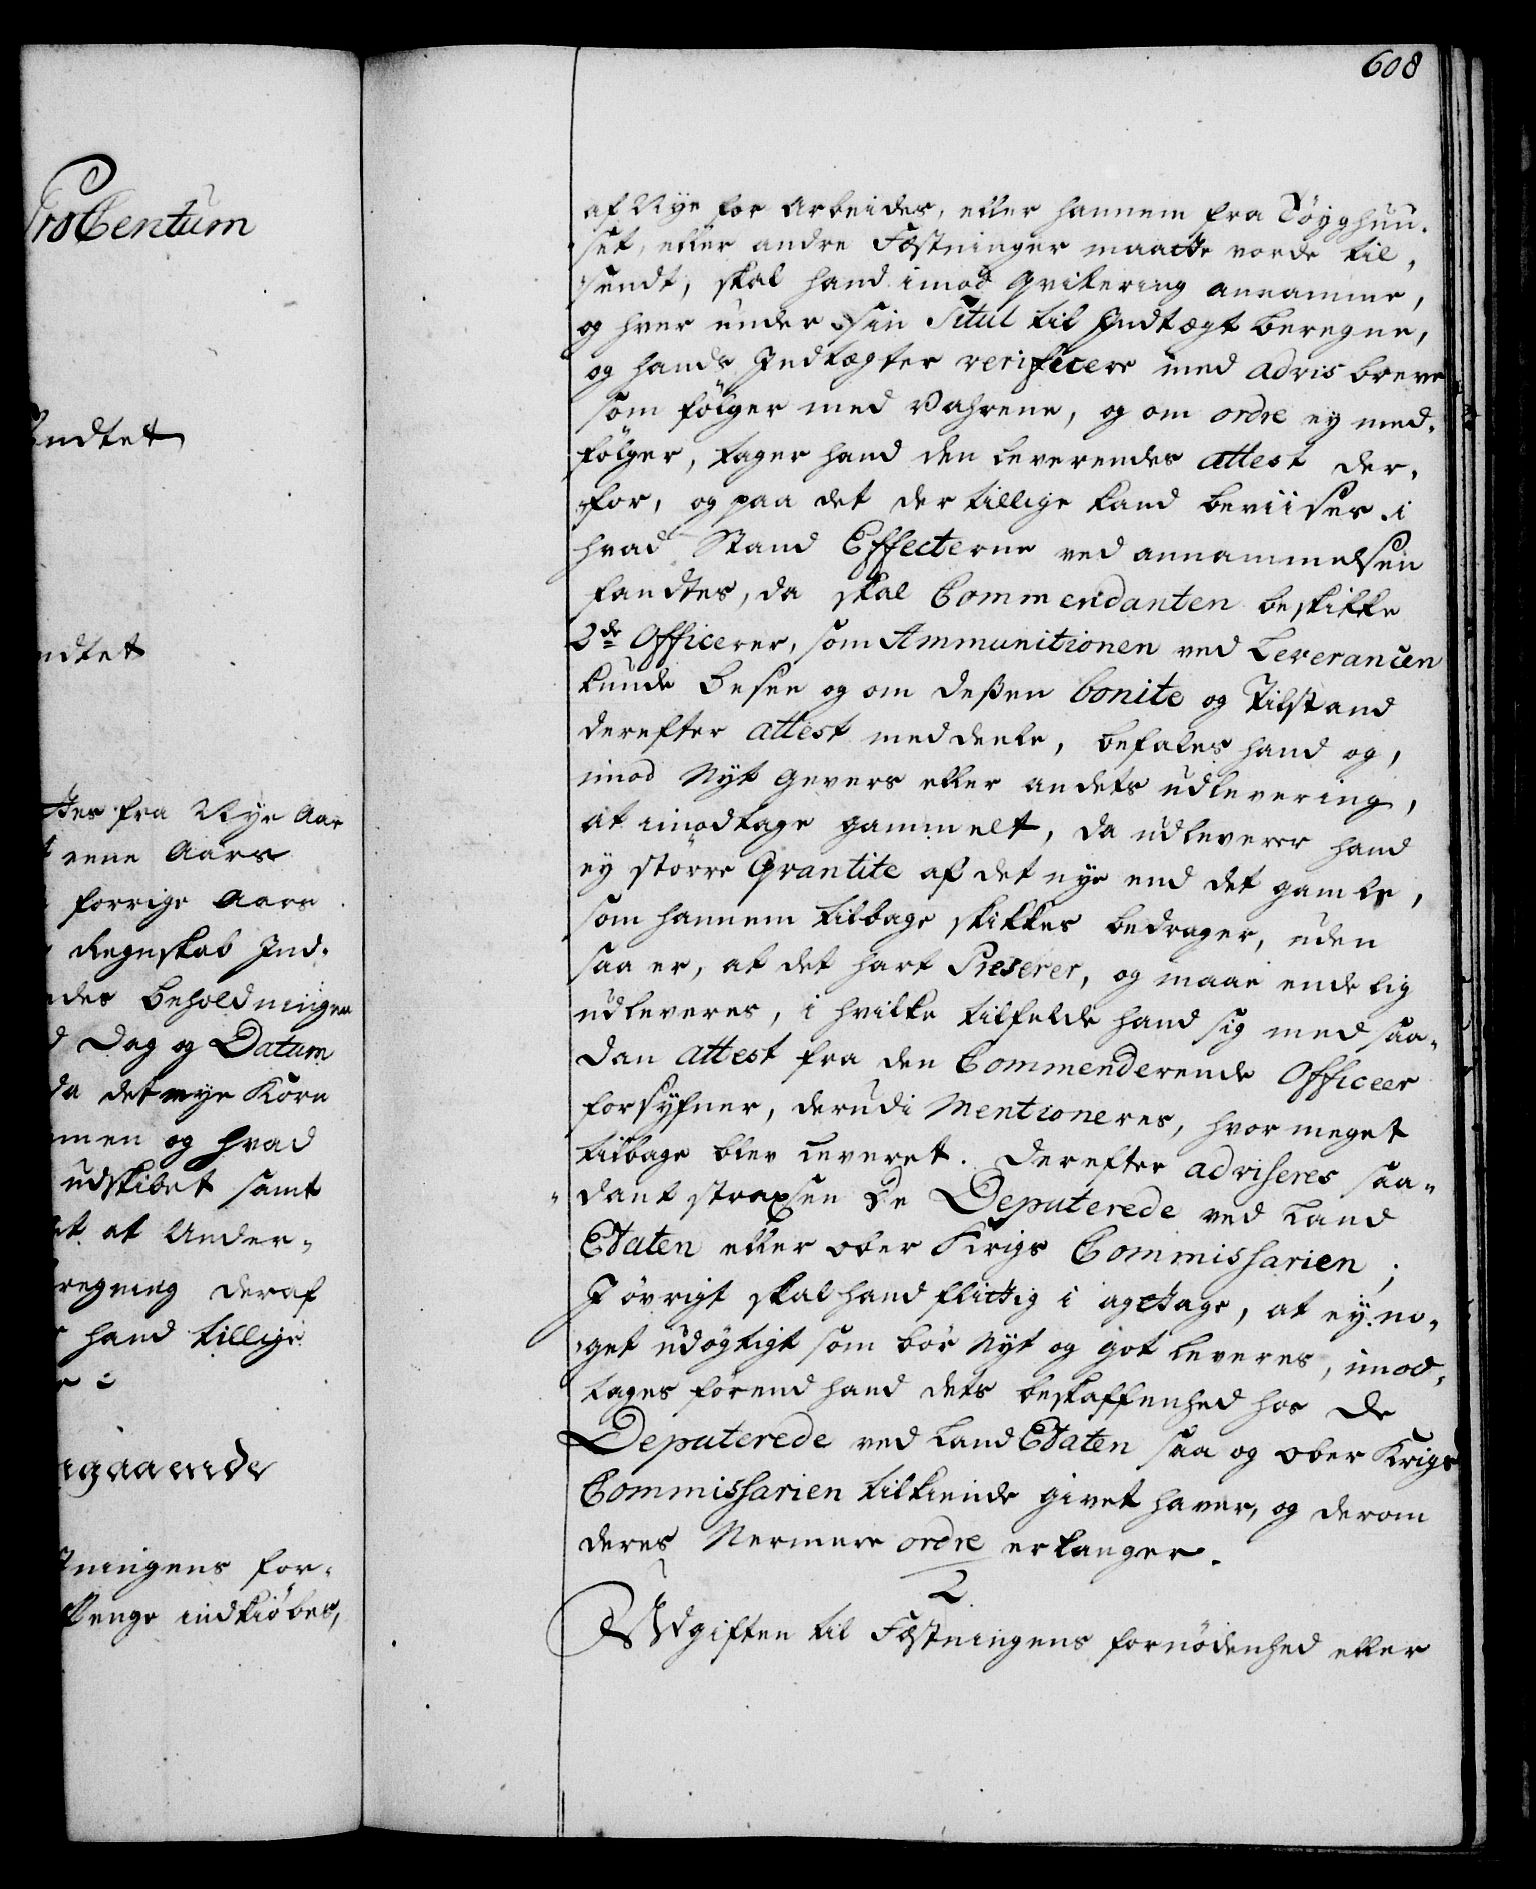 608
ProCentum
endtet
ndtet
tes fra Nye Aar
t eene Aars
forrige Aars
Regnskab Ind-
ndes beholdningen
d Dag og Datum
da det nye Korn
men og hvad
udskibet samt
et at Under-
regning deraf
hand tillige
ngaaende
tningens for-
Penge indkiøbes,
af Nye for arbeides, eller hannem fra Tøyghuu-
set, eller andre Fæstninger maatte vorde til-
sendt, skal hand imod Qvitering annamme,
og hver under sin Titul til Indtægt beregne,
og hands Indtægter verificere med advis breve
som følger med Vahrene, og om ordre ey med-
følger, tager hand den leverendes attest der-
for, og paa det der tillige kand beviises i
hvad Stand Effecterne ved annammelsen
fandtes, da skal Commendanten beskikke
2de Officerer, som Ammunitionen ved Leverancen
kunde besee og om deßen bonite og Tilstand
derefter attest meddeele, befales hand og,
imod Nyt Gevers eller andets udlevering,
at imodtage gammelt, da udleverer hand
ey større Qvantite af det nye end det gamle,
som hannem tilbage skikkes bedrager, uden
saa er, at det hart Preserer, og maae endelig
udleveres, i hvilke tilfelde hand sig med saa-
dan attest fra den Commenderende Officeer
forsyfner, derudi Mentioneres, hvor meget
tilbage blev leveret. Derefter adviseres saa-
dant straxsen De Deputerede ved Land
Etaten eller ober Krigs Commissarien;
I øvrigt skal hand flittig i agttage, at ey no-
get udøgtigt som bør Nyt og got leveres, imod-
tages førend hand dets beskaffenhed hos De
Deputerede ved Land Etaten saa og ober Krigs
Commissarien tilkiende givet haver, og derom
deres Nermere ordre erlanger.
2
Udgiften til Fæstningens fornødenhed eller